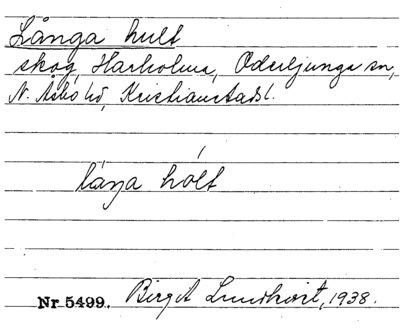 Långa hult
skog, Harholma, Oderljunga sn,
N. Åsbo hd, Kristianstads l.
låŋa hólt
Nr 5499. Birgit Lundkvist, 1938.